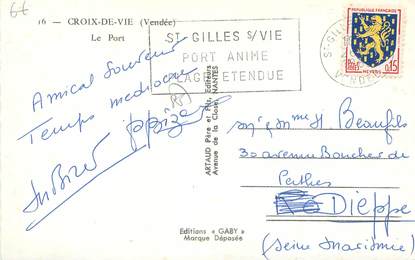 66
16 - CROIX-DE-VIE (Vendée)
Le Port
ST GILLES S/VIE
PORT ANIME
PLAGE ETENDUE
ST-GILL
VENDÉE
REPUBLIQUE FRANÇAISE
POSTES
0,15
NEVERS
Amical souvenir
Temps médiocre
ARTAUD Père et Fils Editeurs
Avenue de la Close, NANTES
Editions « GABY »
Marque Déposée
M. et Mme H Beaufils
30 avenue Boucher de
Perthes
Dieppe
(Seine Maritime)